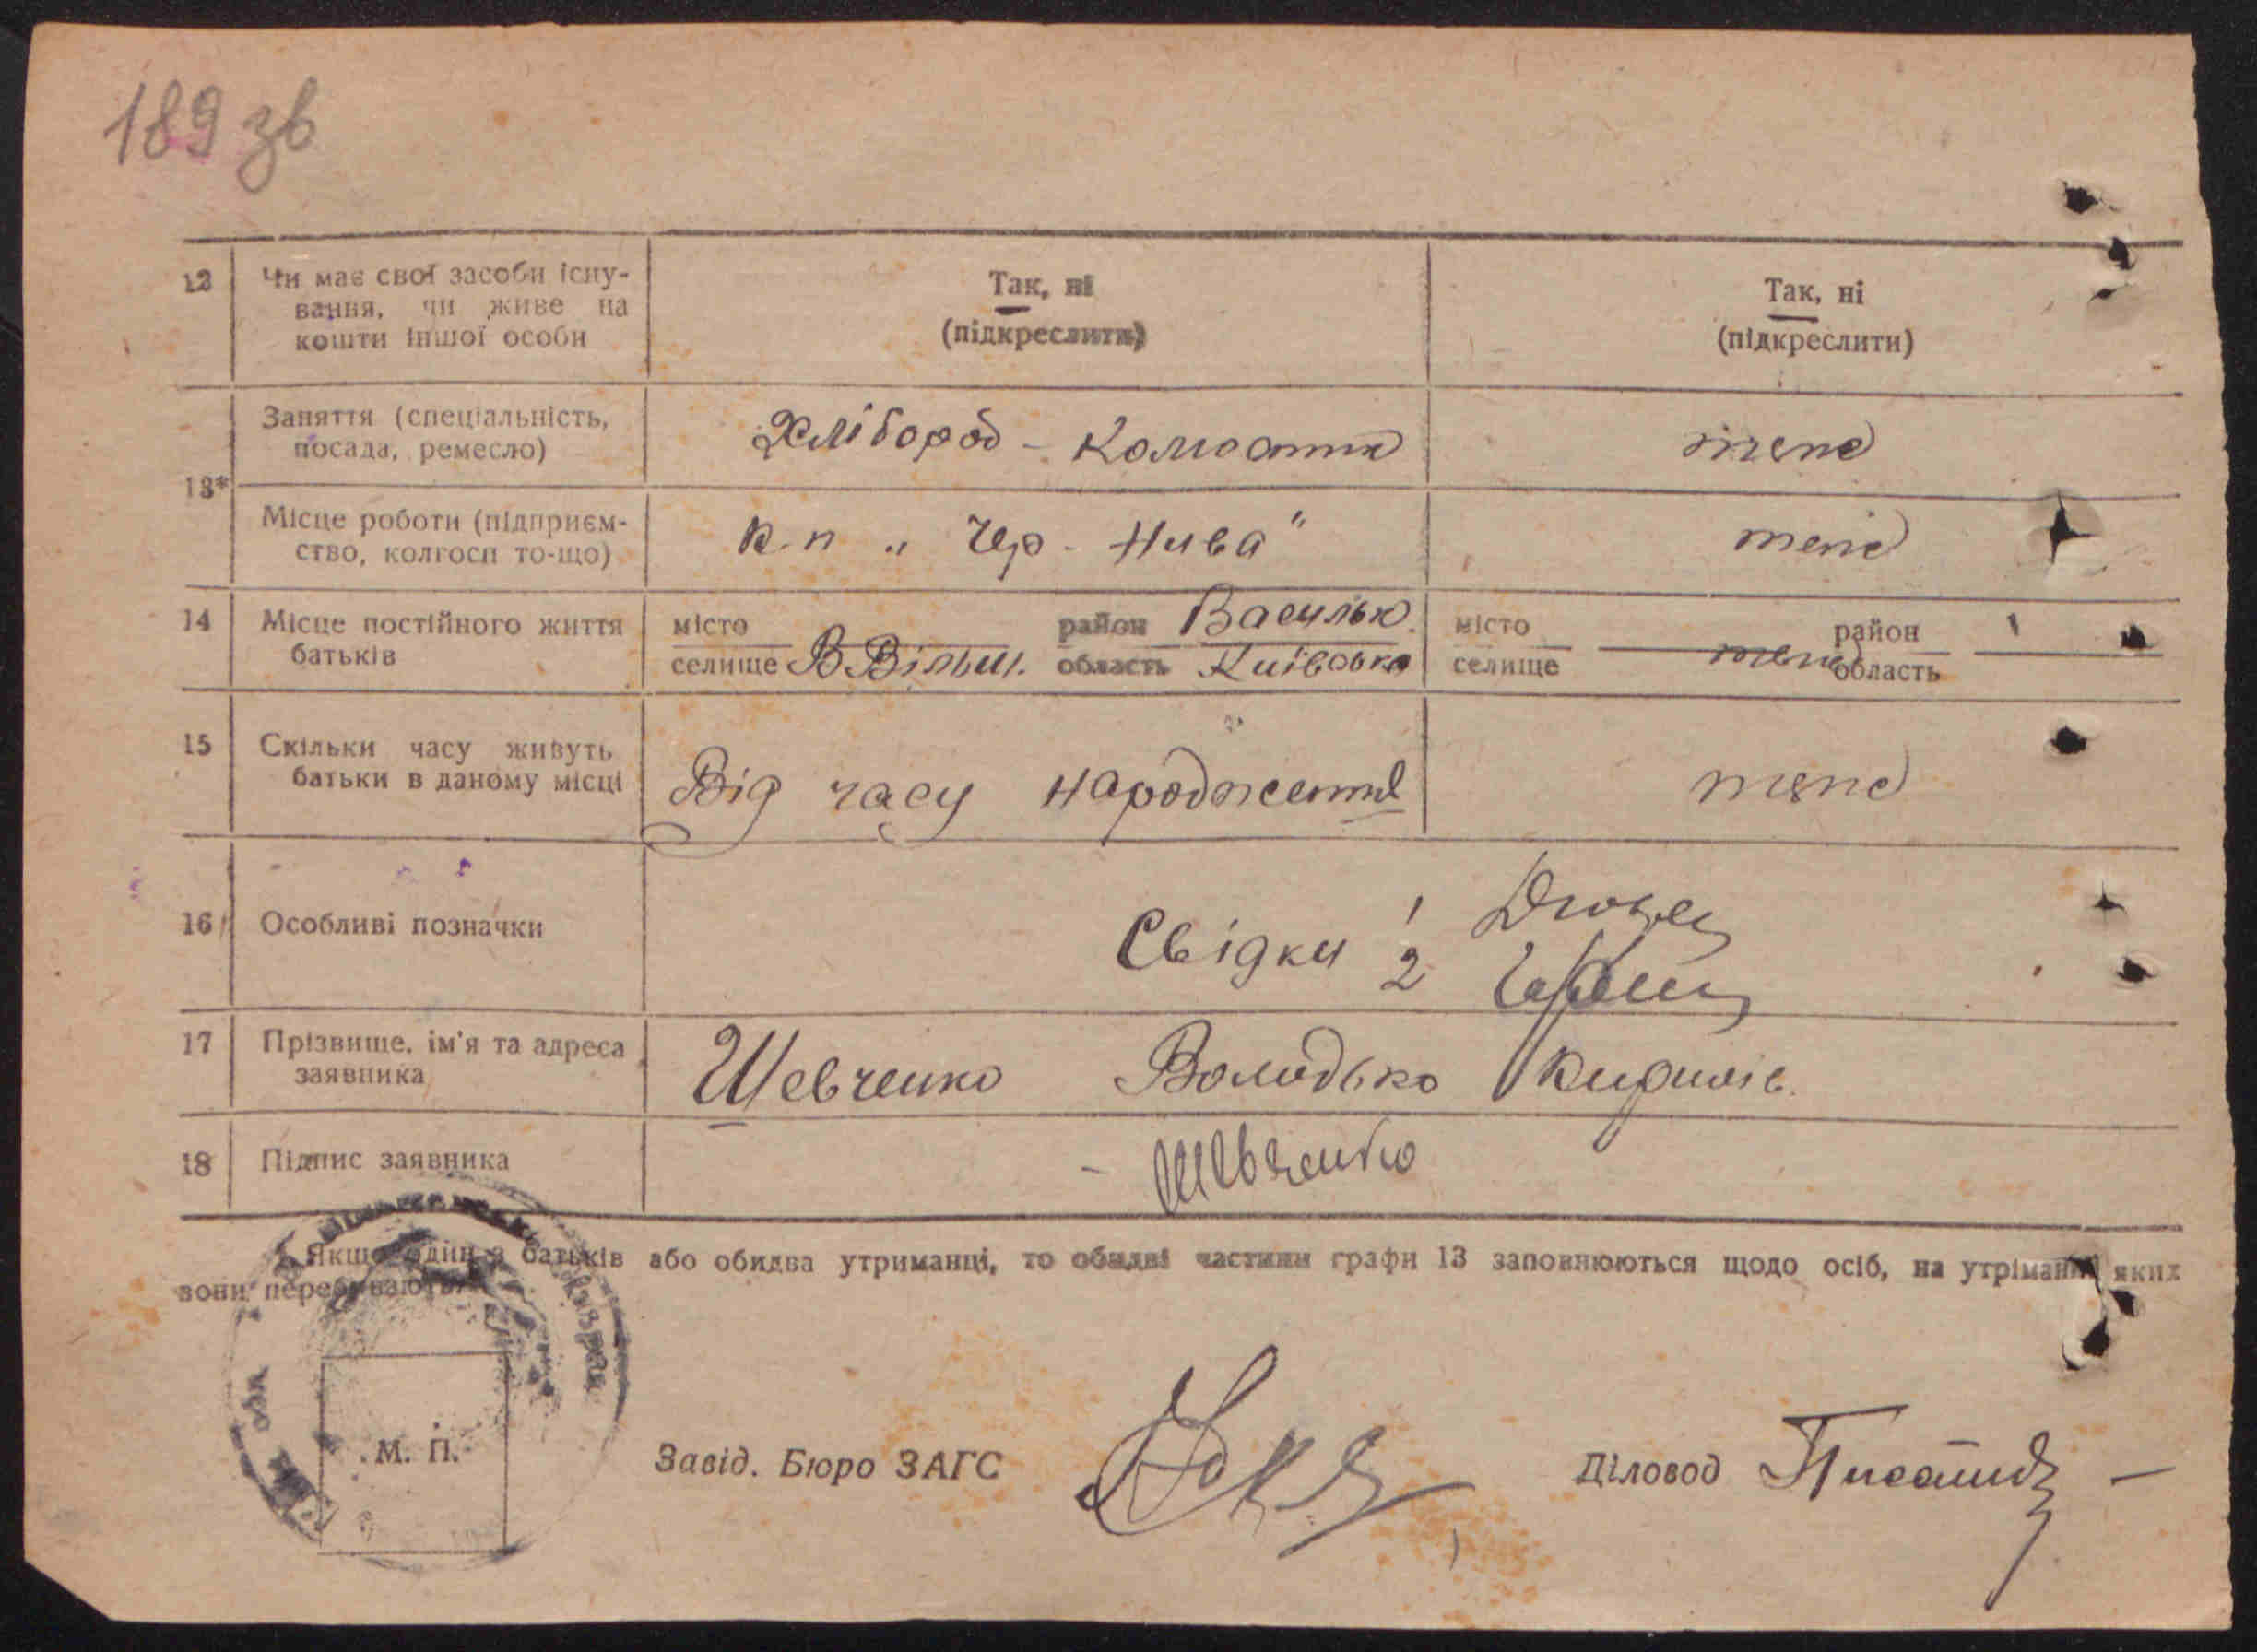 189 зв
12 Чи має свої засоби існу-
вання, чи живе на
кошти іншої особи
Так, ні
(підкреслити)
Так, ні
(підкреслити)
13*
Заняття (спеціальність,
посада, ремесло)
Хлібороб - Колгоспник
теж
Місце роботи (підприєм-
ство, колгосп то-що)
к-п „Чер - Нива"
теж
14 Місце постійного життя
батьків
місто
селище В Вільш.
район Васильк.
область Київська
місто
селище
район
область
15 Скільки часу живуть
батьки в даному місці
Від часу народження
теж
16 Особливі позначки
Свідки 1
2
17 Прізвище, ім'я та адреса
заявника
Шевченко Володько
18 Підпис заявника
- Шевченко
Якщо один з батьків або обидва утриманці, то обидві частини графи 13 заповнюються щодо осіб, на утріманні яких
вони перебувають.
М. П.
Завід. Бюро ЗАГС
Діловод